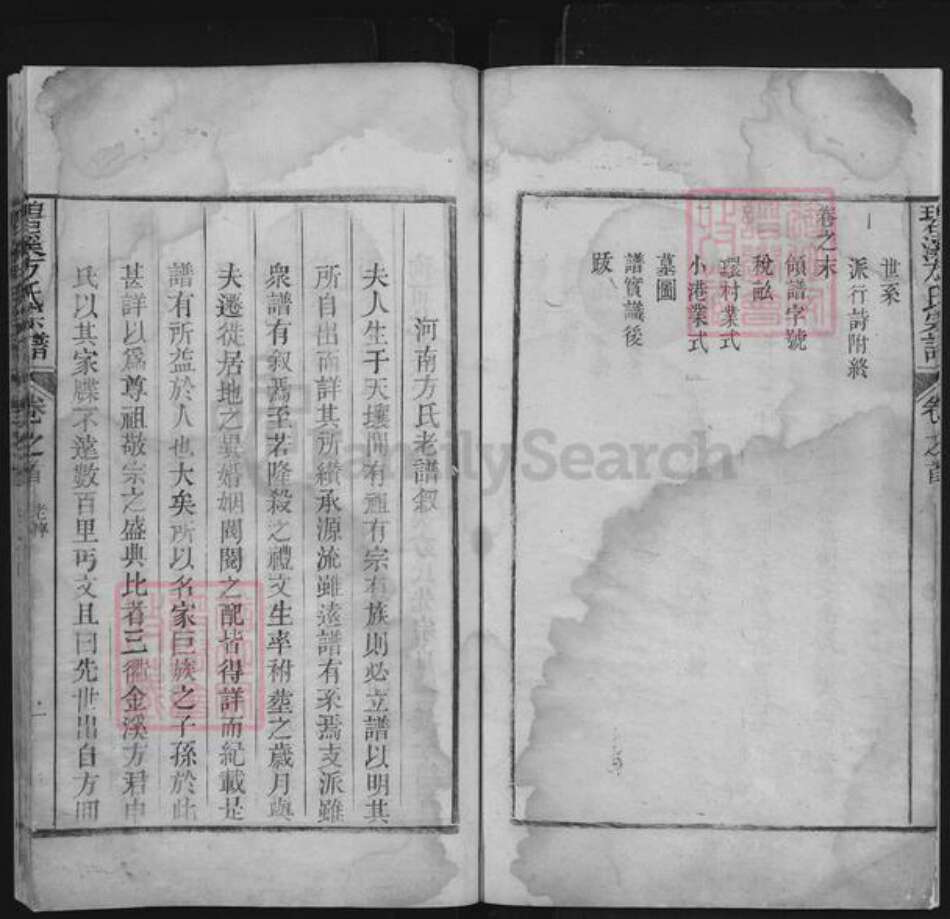 碧溪方氏宗譜
卷之首
世系
派行詩附終
卷之末
領譜字號
稅畝
環村業式
小港業式
墓圖
譜實議後
跋
河南方氏老譜叙
夫人生于天壤間有祖有宗有族則必立譜以明其
所自出而詳其所纘承源流雖遠譜有系焉支派雖
衆譜有叙焉至若隆殺之禮文生卒祔塟之歲月與
夫遷徙居地之異婚姻閥閱之配皆得詳而紀載是
譜有所益於人也大矣所以名家巨族之子孫於此
甚詳以爲尊祖敬宗之盛典比者三衢金溪方君中
氏以其家牒不遠數百里丐文且曰先世出自方
碧溪方氏宗譜
卷之首
老譜
一
FamilySearch